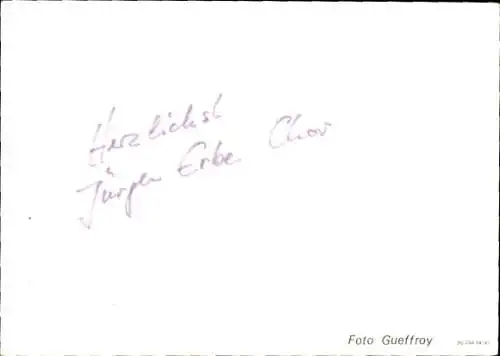 Herzlichst
Jürgen Erbe Chor
Foto Gueffroy